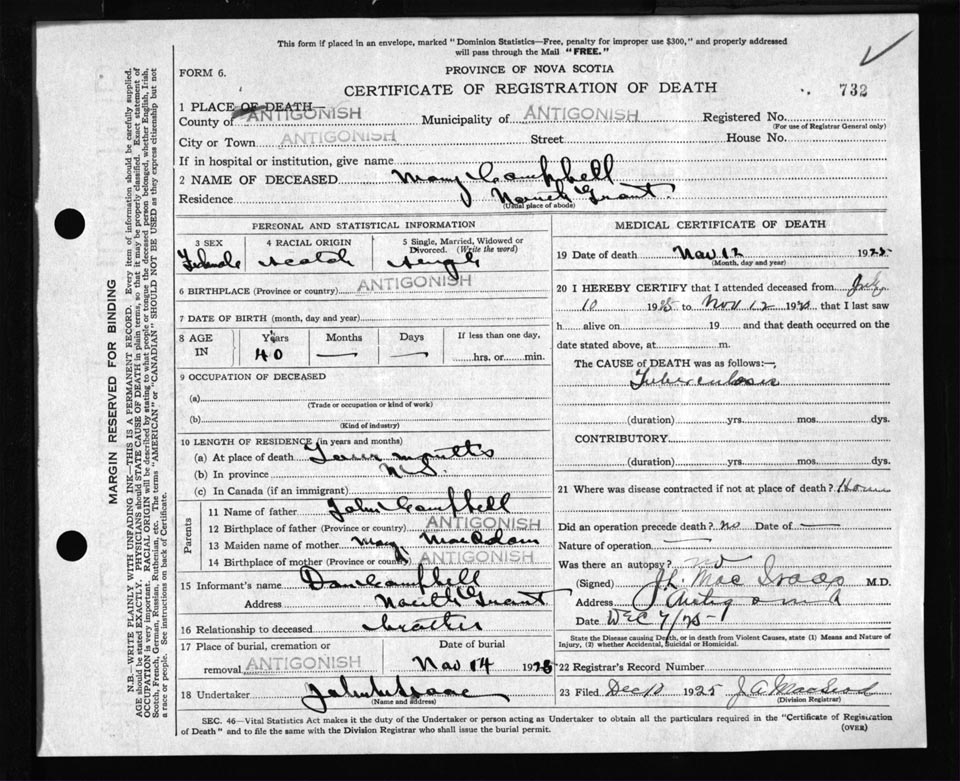 This form if placed in an envelope, marked "Dominion Statistics—Free, penalty for improper use $300," and properly addressed
will pass through the Mail "FREE."
FORM 6.
PROVINCE OF NOVA SCOTIA
CERTIFICATE OF REGISTRATION OF DEATH
732
1 PLACE OF DEATH—
County of ANTIGONISH Municipality of ANTIGONISH Registered No.
(For use of Registrar General only)
City or Town ANTIGONISH Street House No.
If in hospital or institution, give name
2 NAME OF DECEASED Mary Campbell
Residence North Grant
(Usual place of abode)
PERSONAL AND STATISTICAL INFORMATION
3 SEX 4 RACIAL ORIGIN 5 Single, Married, Widowed or Divorced. (Write the word)
Female Scotch Single
6 BIRTHPLACE (Province or country) ANTIGONISH
7 DATE OF BIRTH (month, day and year)
8 AGE IN Years Months Days If less than one day,
40 — — hrs. or min.
9 OCCUPATION OF DECEASED
(a)
(Trade or occupation or kind of work)
(b)
(Kind of industry)
10 LENGTH OF RESIDENCE (in years and months)
(a) At place of death months
(b) In province N.S.
(c) In Canada (if an immigrant)
Parents
11 Name of father John Campbell
12 Birthplace of father (Province or country) ANTIGONISH
13 Maiden name of mother Mary MacAdam
14 Birthplace of mother (Province or country) ANTIGONISH
15 Informant's name Dan Campbell
Address North Grant
16 Relationship to deceased brother
17 Place of burial, cremation or Date of burial
removal ANTIGONISH Nov 14 1925
18 Undertaker
(Name and address)
MEDICAL CERTIFICATE OF DEATH
19 Date of death Nov 12 1925
(Month, day and year)
20 I HEREBY CERTIFY that I attended deceased from July
10 1925 to Nov 12 1925 that I last saw
h alive on 19 and that death occurred on
date stated above, at m.
The CAUSE of DEATH was as follows:—
Tuberculosis
(duration) yrs. mos. dys.
CONTRIBUTORY
(duration) yrs. mos. dys.
21 Where was disease contracted if not at place of death? Home
Did an operation precede death? no Date of —
Nature of operation —
Was there an autopsy? no
(Signed) Mac Isaac M.D.
Address
Date Dec 7/25
State the Disease causing Death, or in death from Violent Causes, state (1) Means and Nature of
Injury, (2) whether Accidental, Suicidal or Homicidal.
22 Registrar's Record Number
23 Filed Dec 1925 J. A. MacLeod
(Division Registrar)
SEC. 46—Vital Statistics Act makes it the duty of the Undertaker or person acting as Undertaker to obtain all the particulars required in the "Certificate of Registration
of Death" and to file the same with the Division Registrar who shall issue the burial permit.
(OVER)
MARGIN RESERVED FOR BINDING
N.B.—WRITE PLAINLY WITH UNFADING INK—THIS IS A PERMANENT RECORD. Every item of information should be carefully supplied.
AGE should be stated EXACTLY. PHYSICIANS should STATE CAUSE OF DEATH in plain terms, so that it may be properly classified. Exact statement of
OCCUPATION is very important. RACIAL ORIGIN will be described by stating to what people or tongue the deceased person belonged, whether English, Irish,
Scotch, French, German, Russian, Ruthenian, etc. The terms "AMERICAN" or "CANADIAN" SHOULD NOT BE USED as they express citizenship but not
a race or people. See instructions on back of Certificate.